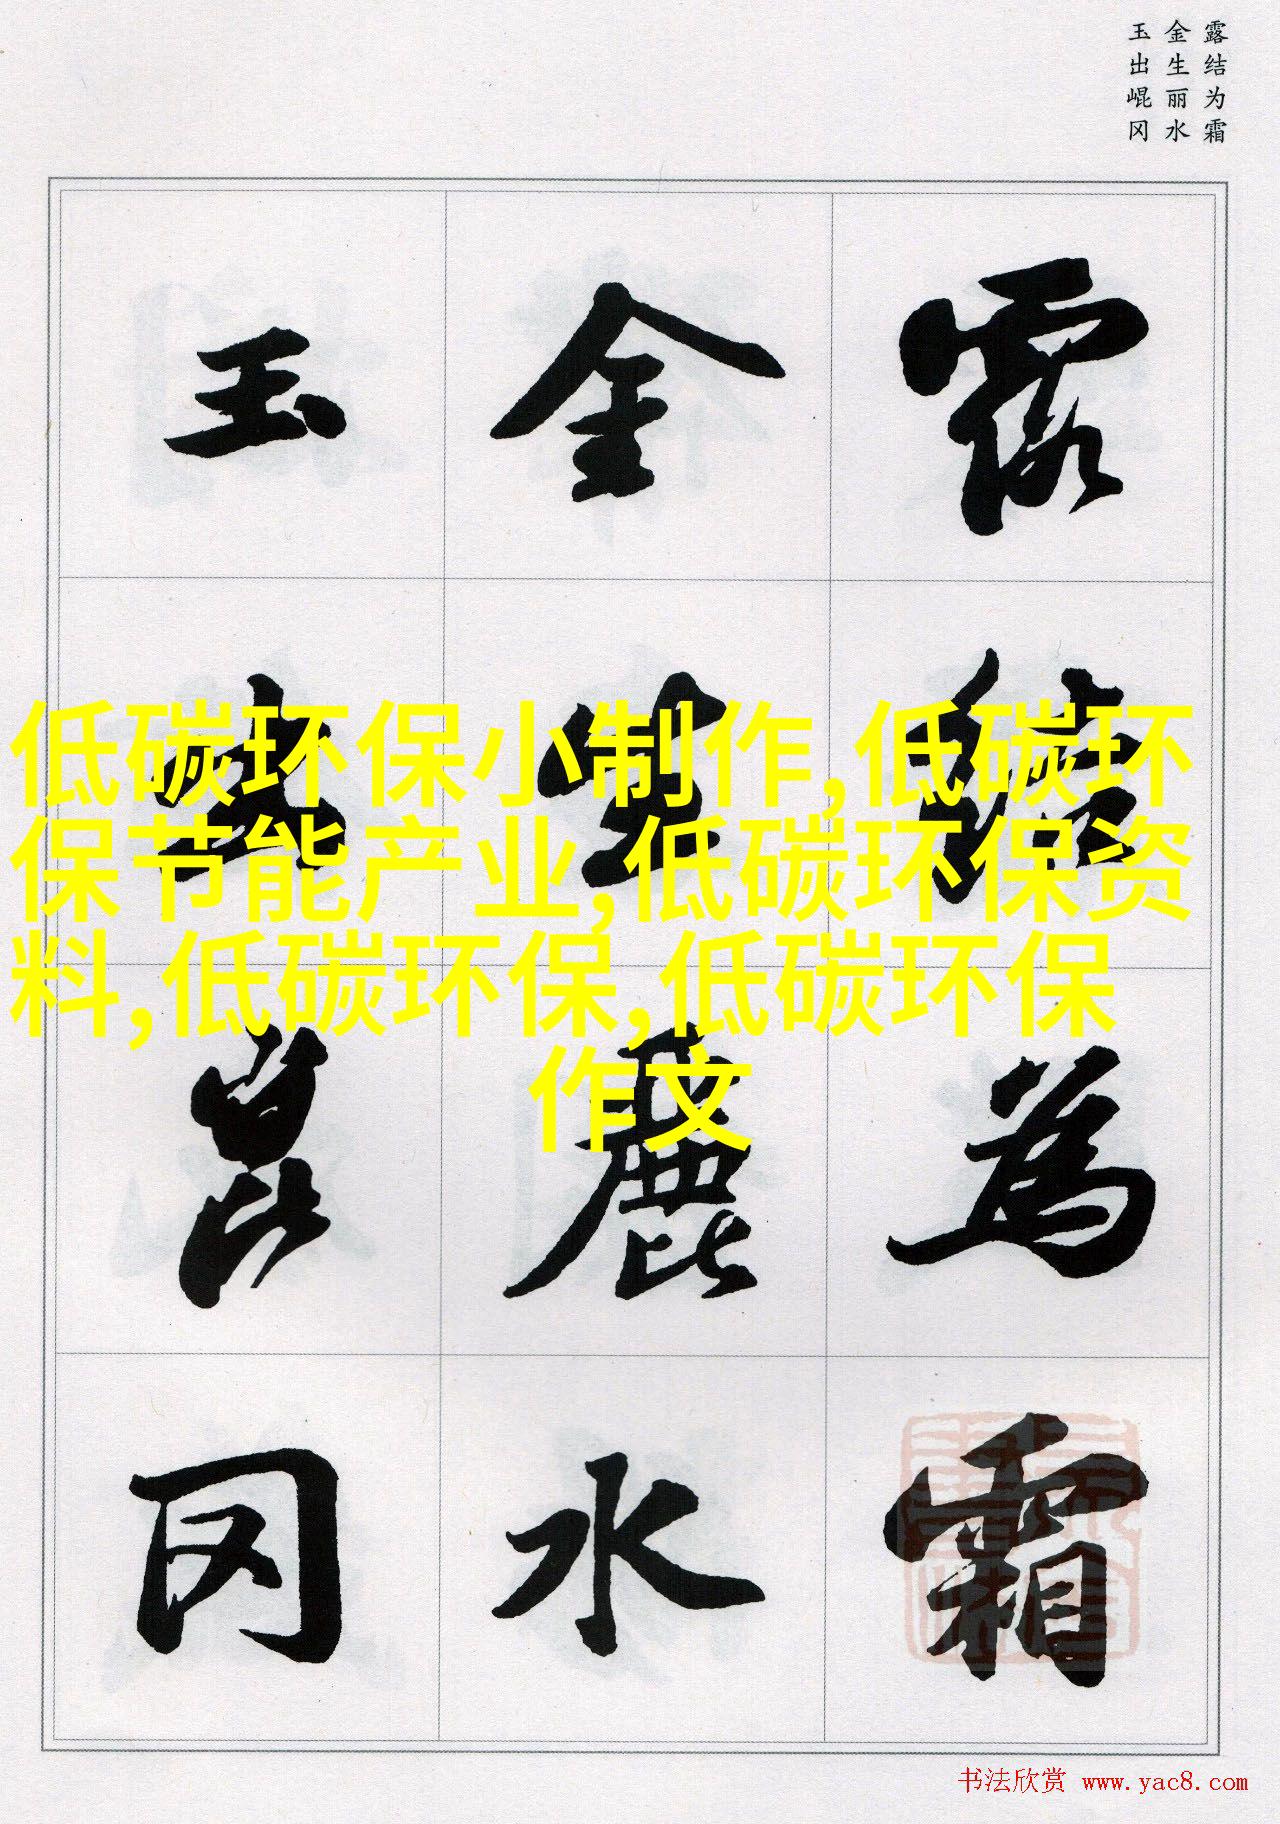 露结为霜
金生丽水
玉出崐冈
露结为霜
金生麗水
玉出崑冈
低碳环保小制作,低碳环
保节能产业,低碳环保资
料,低碳环保,低碳环保
作文
书法欣赏 www.yac8.com